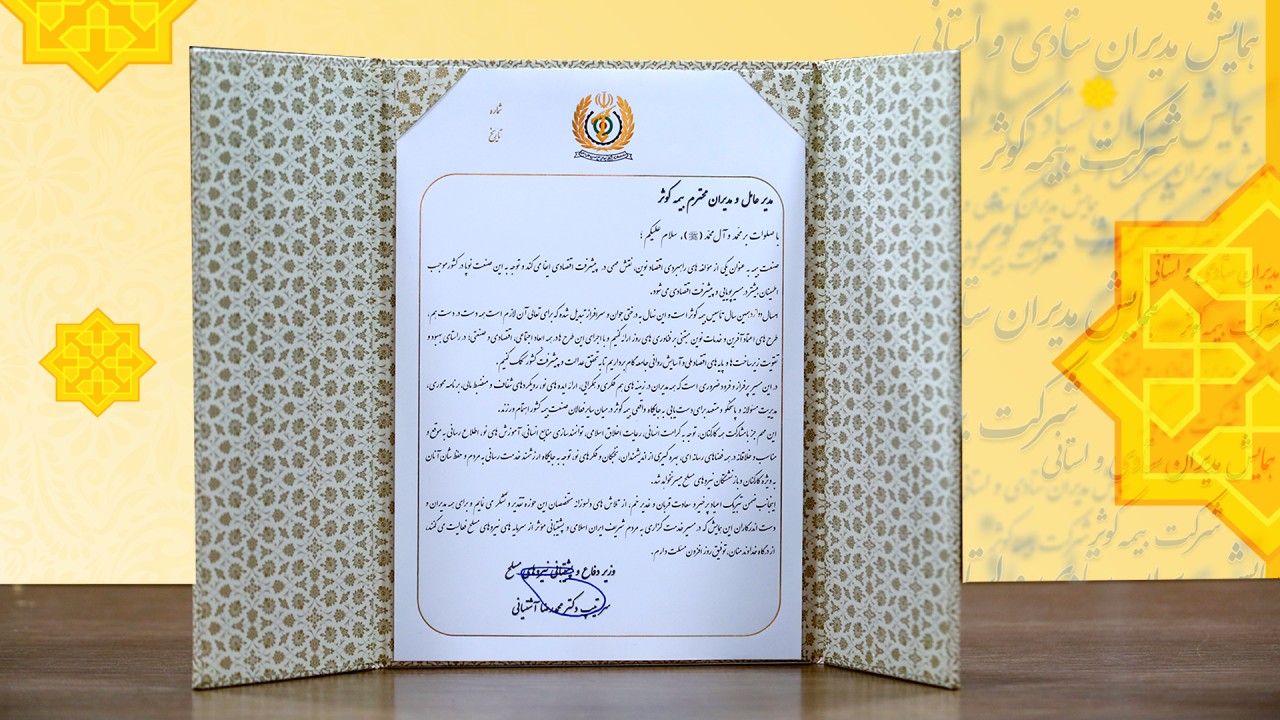 شماره
تاریخ
مدیر عامل و مدیران محترم بیمه کوثر
با صلوات بر محمد و آل محمد (ﷺ)، سلام علیکم ؛
صنعت بیمه به عنوان یکی از مؤلفه های راهبردی اقتصاد نوین، نقش مهمی در پیشرفت اقتصادی ایفا می کند و توجه به این صنعت نوپا در کشور موجب
اطمینان بیشتر در مسیر پویایی و پیشرفت اقتصادی می شود.
امسال دوازدهمین سال تاسیس بیمه کوثر است و این نهال به درختی جوان و سرافراز تبدیل شده که برای تعالی آن لازم است همه دست در دست هم
طرح های اعتماد آفرین و خدمات نوین مبتنی بر فناوری های روز ارائه کنیم و با اجرای این طرح ها در همه ابعاد اجتماعی، اقتصادی و صنعتی؛ در راستای بهبود و
تقویت زیرساخت ها و پایه های اقتصاد ملی و آسایش روانی جامعه گام برداریم تا به تحقق عدالت و پیشرفت کشور کمک کنیم.
در این مسیر پر فراز و فرود ضروری است که همه مدیران در زمینه های هم فکری و همگرایی، ارائه ایده های نو، رویکردهای شفاف و منضبط مالی، برنامه محوری،
مدیریت مسئولانه و پاسخگو و متعهد برای دست یابی به جایگاه واقعی بیمه کوثر در میان سایر فعالان صنعت بیمه کشور اهتمام ورزند.
این مهم جز با مشارکت همه کارکنان، توجه به کرامت انسانی، رعایت اخلاق اسلامی، توانمندسازی منابع انسانی، آموزش های نو، اطلاع رسانی به موقع و
مناسب و خلاقانه در همه فضاهای رسانه ای، بهره گیری از اندیشمندان، نخبگان و فکرهای نو، توجه به جایگاه ارزشمند خدمت رسانی به مردم و حفظ شأن آنان
به ویژه کارکنان و بازنشستگان نیروهای مسلح میسر نخواهد شد.
اینجانب ضمن تبریک اعیاد پر خیر و سعادت قربان و غدیر خم، از تلاش های دلسوزانه متخصصان این حوزه تقدیر و تشکر می نمایم و برای همه مدیران و
دست اندرکاران این همایش که در مسیر خدمت گزاری به مردم شریف ایران اسلامی و پشتیبانی مؤثر از سرمایه های نیروهای مسلح فعالیت می کنند،
از درگاه خداوند منان، توفیق روز افزون مسئلت دارم.
وزیر دفاع و پشتیبانی نیروهای مسلح
سرتیپ دکتر محمدرضا آشتیانی
همایش مدیران ستادی و استانی
شرکت بیمه کوثر
مدیران ستادی و استانی
شرکت بیمه کوثر
همایش مدیران ستادی و استانی
شرکت بیمه کوثر